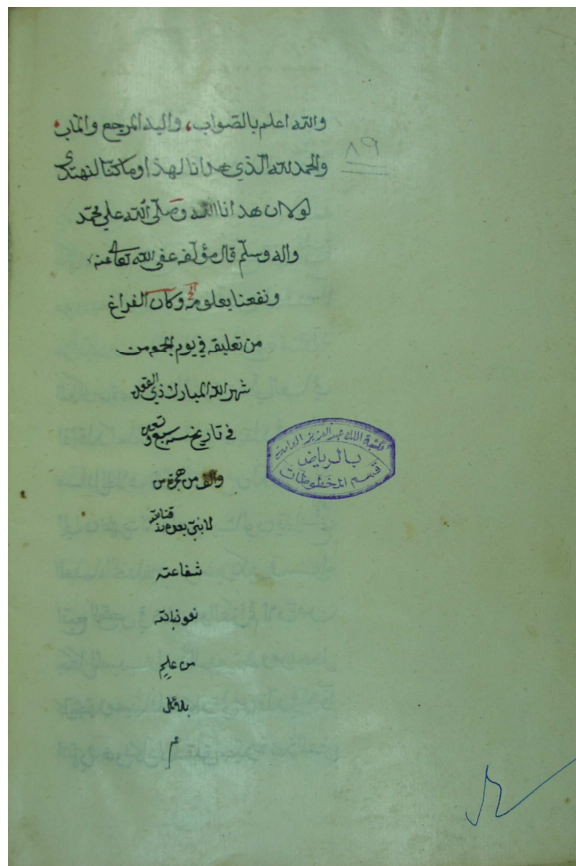 والله اعلم بالصواب، واليه المرجع والمآب،
٨٩
والحمد لله الذي هدانا لهذا وما كنا لنهتدي
لولا ان هدانا الله وصلى الله على محمد
واله وسلم قال مؤلفه عفى الله تعا عنه
ونفعنا بعلومه وكان الفراغ
من تعليقه في يوم الجمعه من
شهر الله المبارك ذي القعد
في تاريخ سنه سبع
والف من هجرة من
لا نبي بعده
شفاعته
نعوذ بالله
من علم
بلا عمل
م
مكتبة الملك عبد العزيز العامة
بالرياض
قسم المخطوطات